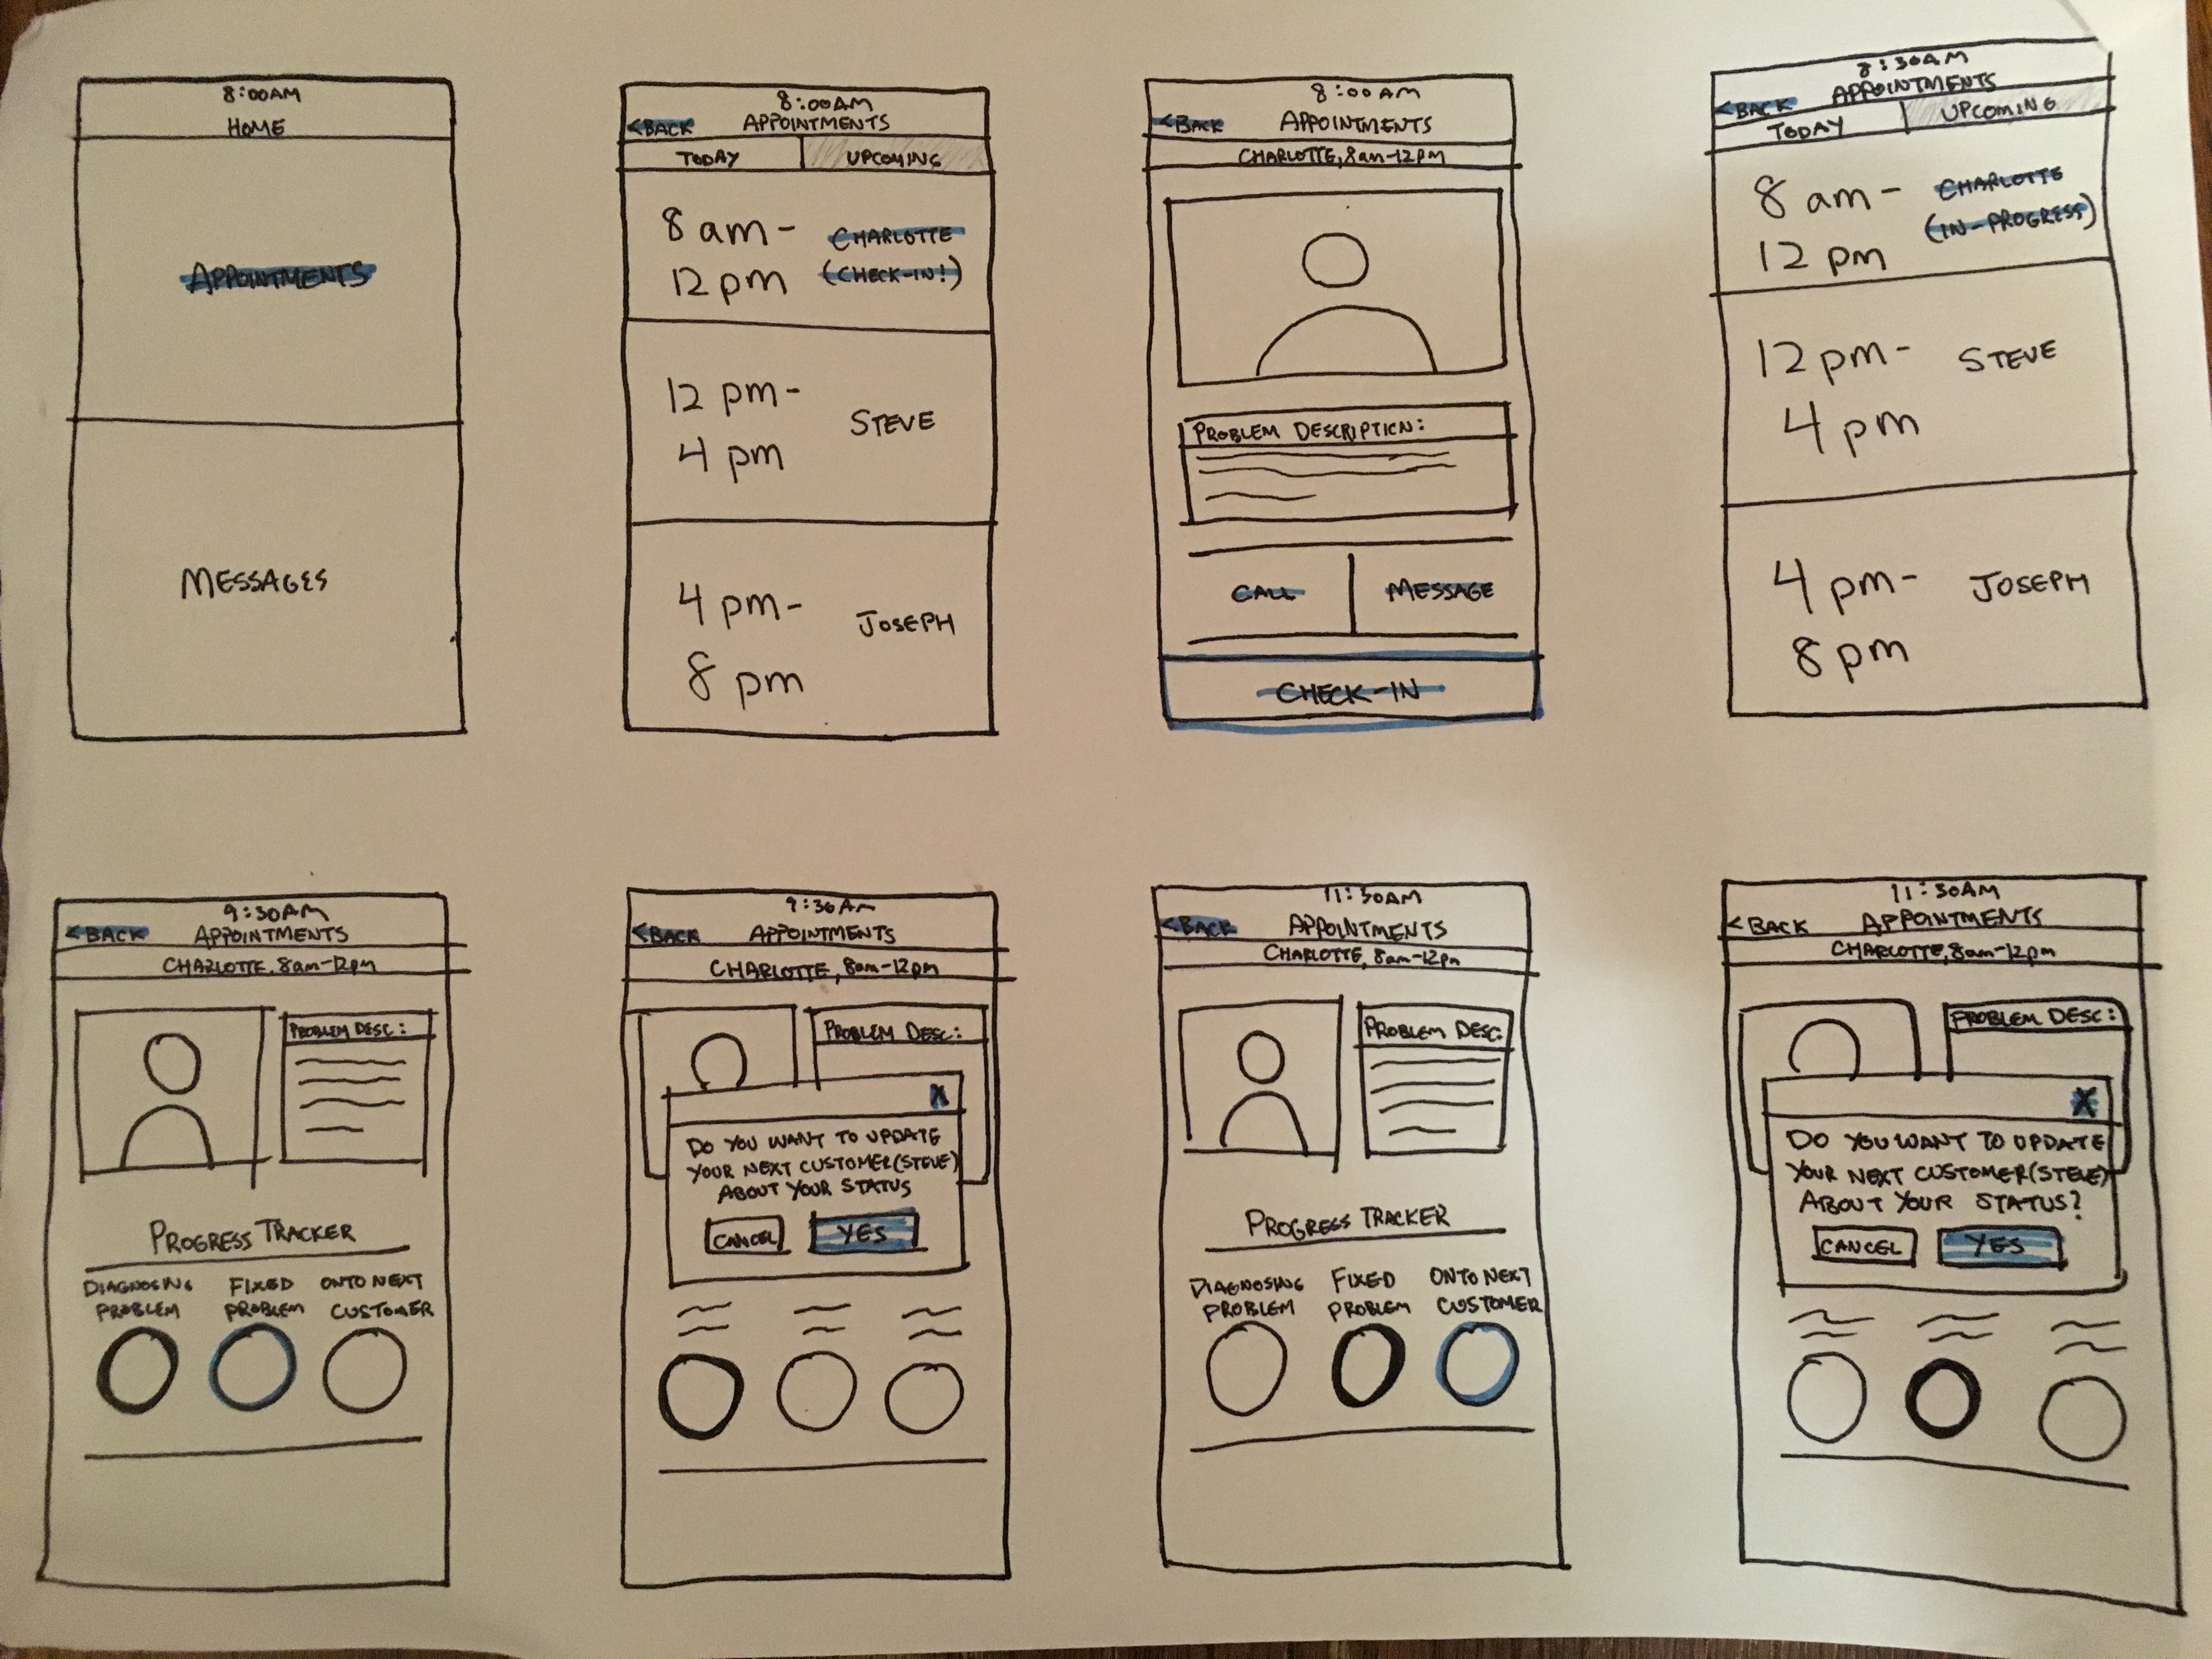 8:00AM
HOME
APPOINTMENTS
MESSAGES
8:00AM
<BACK APPOINTMENTS
TODAY UPCOMING
8 am- CHARLOTTE
12 pm (CHECK-IN!)
12 pm- STEVE
4 pm
4 pm- JOSEPH
8 pm
8:00AM
<BACK APPOINTMENTS
CHARLOTTE, 8am-12pm
PROBLEM DESCRIPTION:
CALL MESSAGE
CHECK-IN
8:30AM
<BACK APPOINTMENTS
TODAY UPCOMING
8 am- CHARLOTTE
12 pm (IN-PROGRESS)
12 pm- STEVE
4 pm
4 pm- JOSEPH
8 pm
9:30AM
<BACK APPOINTMENTS
CHARLOTTE, 8am-12pm
PROBLEM DESC:
PROGRESS TRACKER
DIAGNOSING FIXED ONTO NEXT
PROBLEM PROBLEM CUSTOMER
9:30AM
<BACK APPOINTMENTS
CHARLOTTE, 8am-12pm
PROBLEM DESC:
X
DO YOU WANT TO UPDATE
YOUR NEXT CUSTOMER(STEVE)
ABOUT YOUR STATUS
CANCEL YES
11:30AM
<BACK APPOINTMENTS
CHARLOTTE, 8am-12pm
PROBLEM DESC:
PROGRESS TRACKER
DIAGNOSING FIXED ONTO NEXT
PROBLEM PROBLEM CUSTOMER
11:30AM
<BACK APPOINTMENTS
CHARLOTTE, 8am-12pm
PROBLEM DESC:
X
DO YOU WANT TO UPDATE
YOUR NEXT CUSTOMER(STEVE)
ABOUT YOUR STATUS?
CANCEL YES